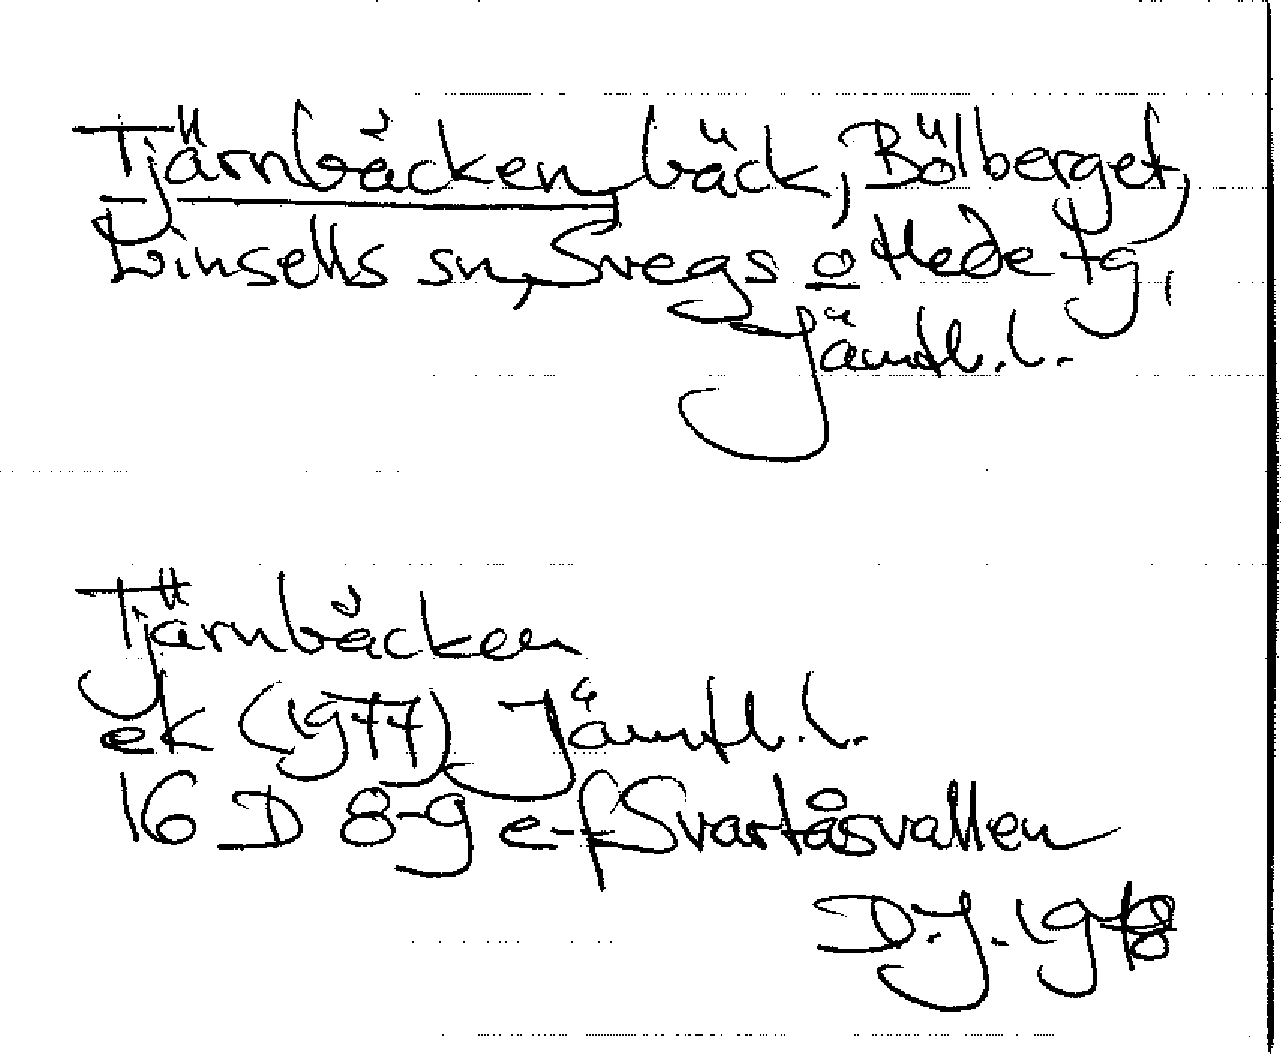 Tjärnbäcken, bäck, Bölberget,
Linsells sn, Svegs o Hede tg,
Jämtl. l.
Tjärnbäcken
ek (1977) Jämtl. l.
16 D 8-g e-f Svartåsvallen
D. J. 1978